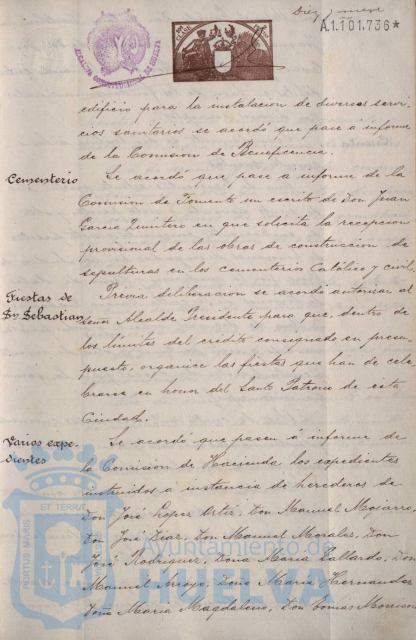 Diez y nueve
A.1.101.736*
ALCALDIA CONSTITUCIONAL DE HUELVA
edificio para la instalacion de diversos servi-
cios sanitarios se acordó que pase á informe
de la Comision de Beneficencia.
Cementerio
Se acordó que pase a informe de la
Comision de Fomento un escrito de Don Juan
García Quintero en que solicita la recepcion
provisional de las obras de construccion de
sepulturas en los cementerios Católico y civil.
Fiestas de
Sn Sebastian
Previa deliberacion se acordó autorizar al
señor Alcalde Presidente para que, dentro de
los límites del crédito consignado en presu-
puesto, organice las fiestas que han de cele-
brarse en honor del Santo Patrono de esta
Ciudad.
Varios expe-
dientes
Se acordó que pasen á informe de
la Comision de Hacienda los expedientes
instruidos á instancia de herederos de
Don José Lopez Ortiz, Don Manuel Mojarro,
Don José Diaz, Don Manuel Morales, Don
José Rodriguez, Doña Maria Gallardo, Don
Manuel Arroyo, Doña Maria Hernandez
Doña Maria Magdaleno, Don Tomas Moreno
PORTUS MARIS ET TERRAE
Ayuntamiento de
HUELVA